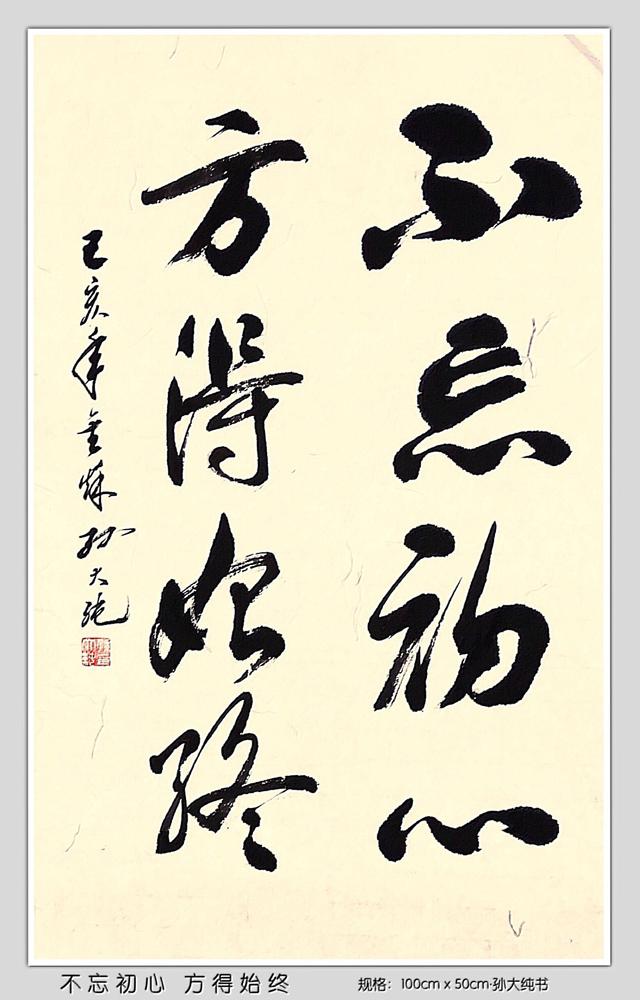 不忘初心
方得始终
己亥年金秋孙大纯
不忘初心 方得始终
规格：100cm x 50cm·孙大纯书